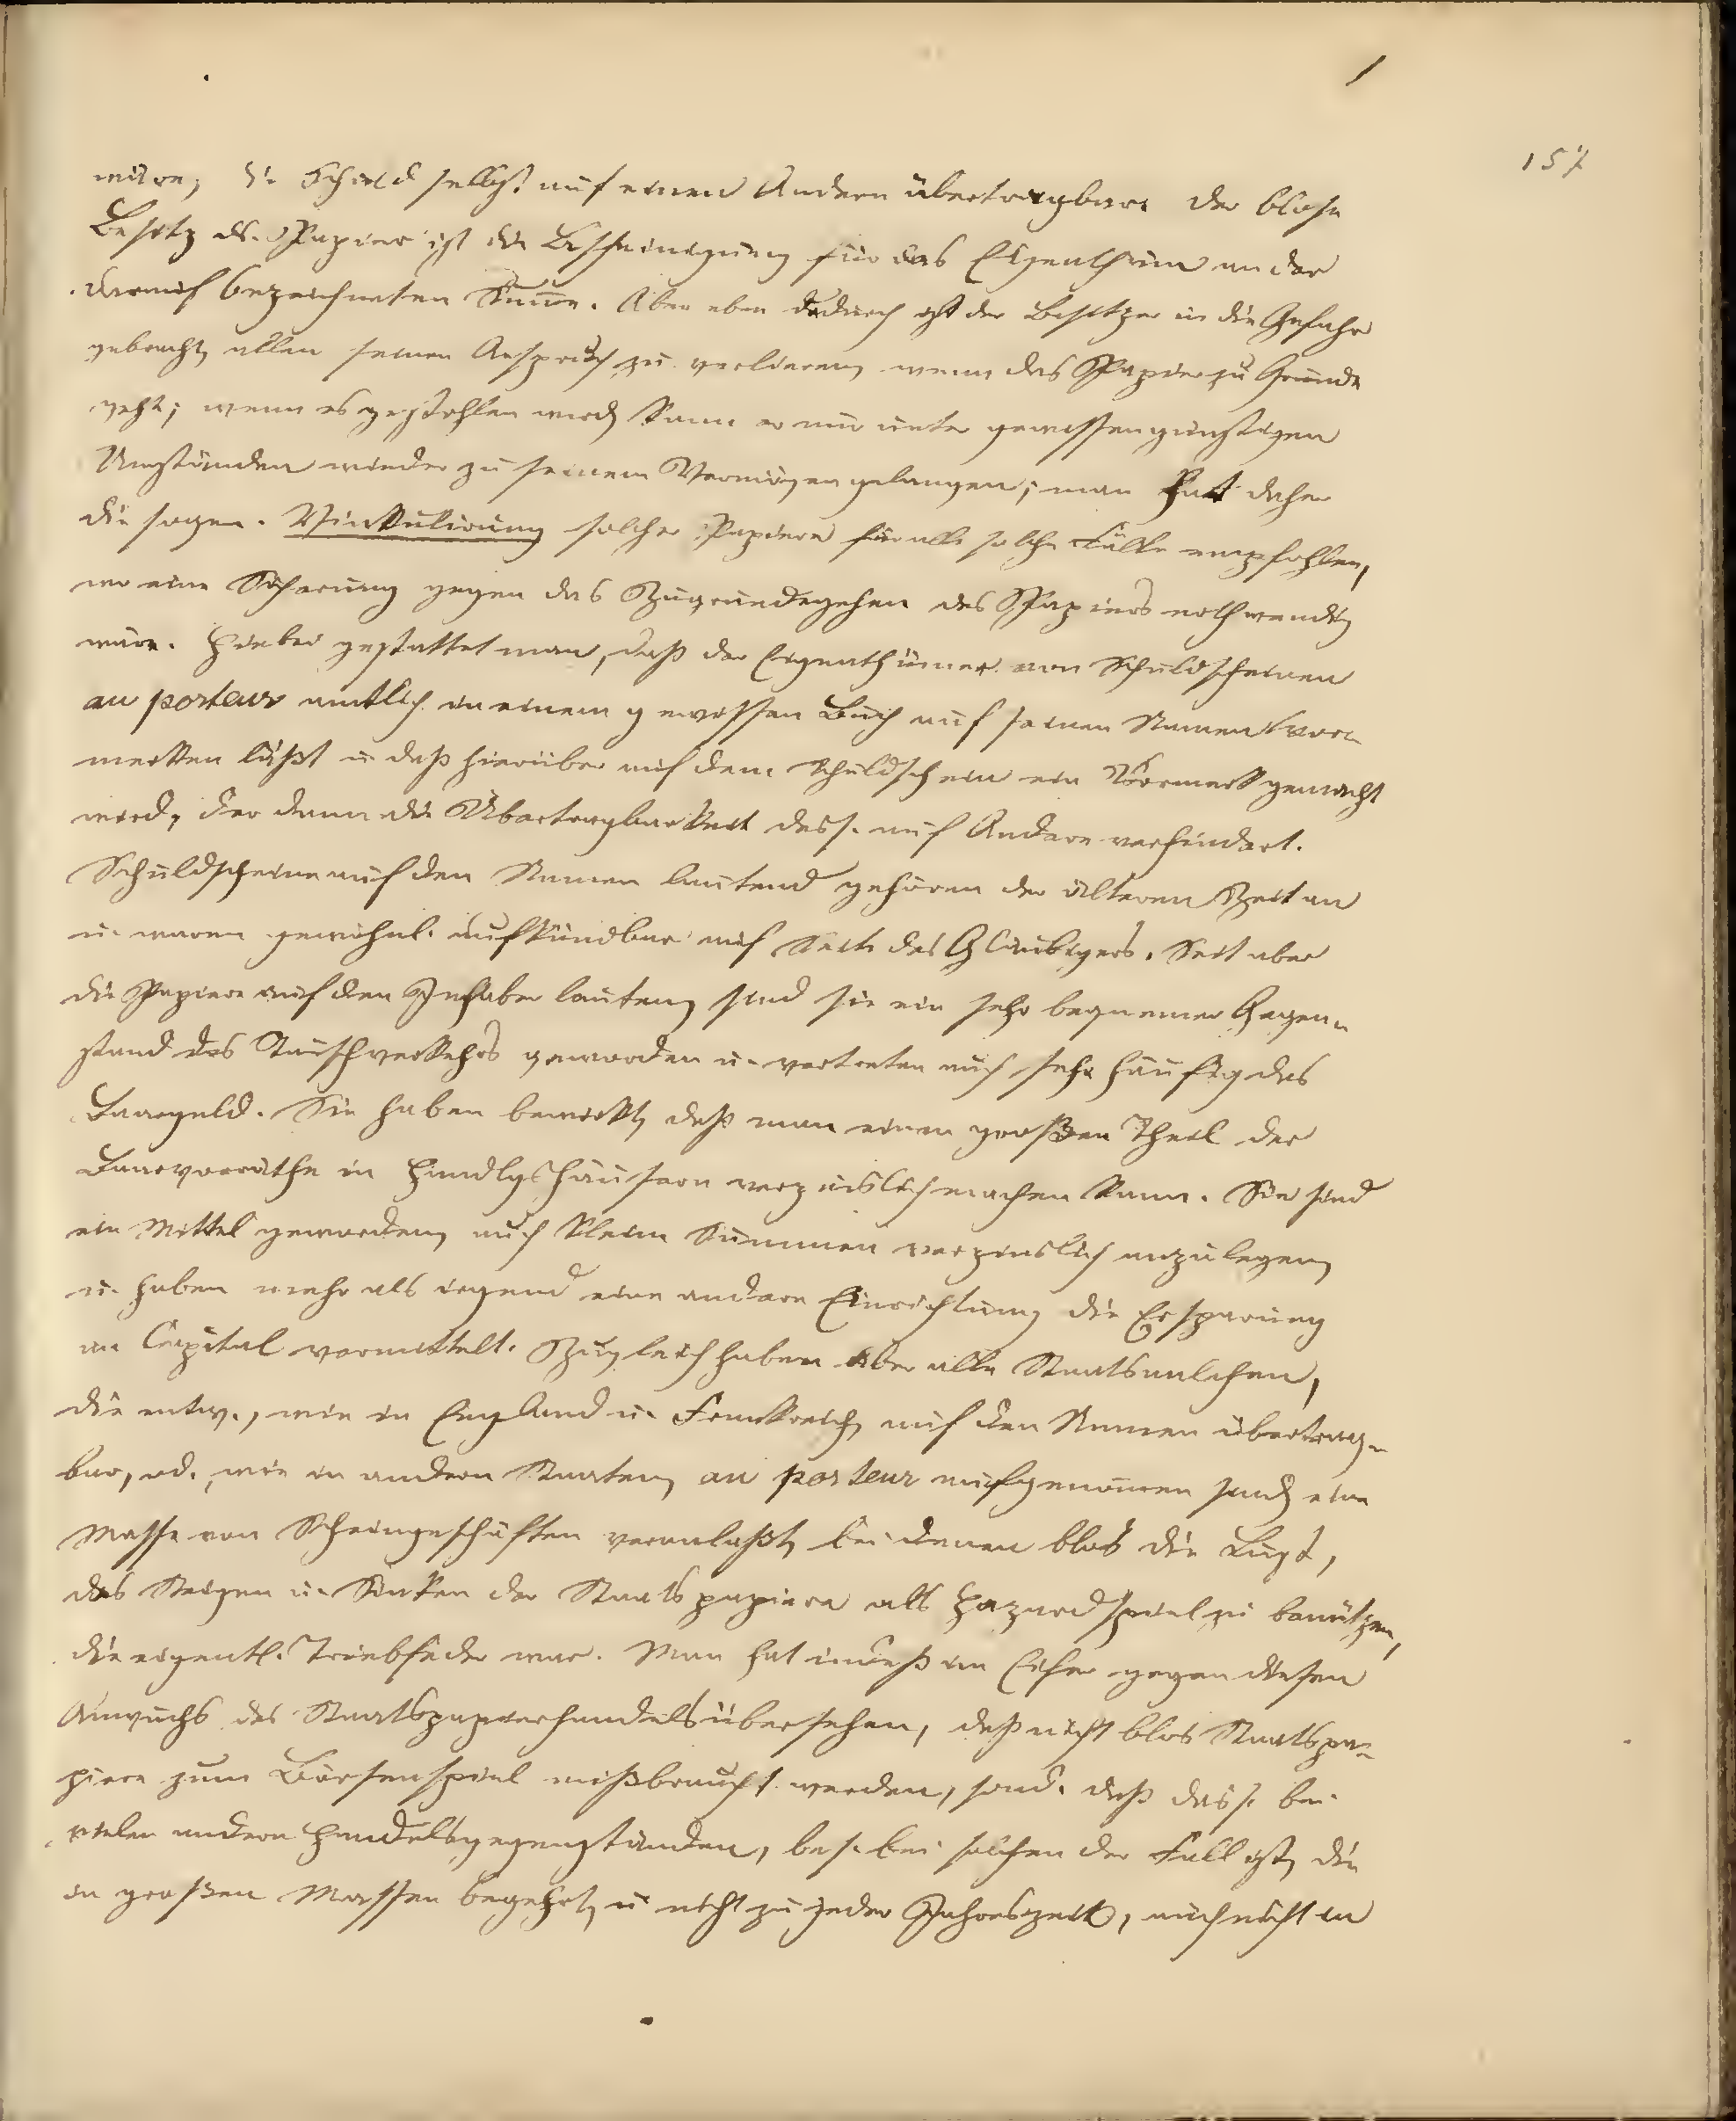 157
wäre, die Schuld selbst auf einen Andern übertragbar. der blose
Besitz ds. Papiers ist die Bescheinigung für das Eigenthum an der
darauf bezeichneten Summe. Aber eben dadurch ist der Besitzer in die Gefahr
gebracht, allen seinen Anspruch zu verlieren, wenn das Papier zu Grunde
geht; wenn es gestohlen wird, kann er nur unter gewissen günstigen
Umständen wieder zu seinem Vermögen gelangen; man hat daher
die sogen. Vinkulirung solcher Papiere für alle solche Fälle empfohlen,
wo eine Sicherung gegen das Zugrundegehen des Papiers nothwendig
wäre. Hiebei gestattet man, daß der Eigenthümer von Schuldscheinen
au porteur amtlich in einem gewissen Buch auf seinen Namen vor-
merken läßt u. daß hierüber auf dem Schuldschein ein Vormerk gemacht
wird, der dann die Übertragbarkeit dess. auf Andere verhindert.
Schuldscheine auf den Namen lautend gehören der älteren Zeit an
u. waren gewöhnl. aufkündbar auf Seite des Gläubigers. Seit aber
die Papiere auf den Inhaber lauten, sind sie ein sehr bequemer Gegen-
stand des Tauschverkehrs geworden u. vertreten auch sehr häufig das
Baargeld. Sie haben bewirkt, daß man einen großen Theil der
Baarvorräthe in Handlgshäusern verzinslich machen kann. Sie sind
ein Mittel geworden, auch kleine Summen verzinslich anzulegen,
u. haben mehr als irgend eine andere Einrichtung die Ersparung
an Capital vermittelt. Zugleich haben aber alle Staatsanlehen,
die entw., wie in England u. Frankreich, auf den Namen übertrag-
bar, od., wie in andern Staaten, au porteur aufgenommen sind, eine
Masse von Scheingeschäften veranlaßt, bei denen blos die Lust,
das Steigen u. Sinken der Staatspapiere als Hazardspiel zu benützen,
die eigentl. Triebfeder war. Man hat indeß im Eifer gegen diesen
Auswuchs des Staatspapierhandels übersehen, daß nicht blos Staatspa-
piere zum Börsenspiel mißbraucht werden, sond. daß dass. bei
vielen andern Handelsgegenständen, bes. bei solchen der Fall ist, die
in großen Massen begehrt, u. nicht zu jeder Jahreszeit, auch nicht in